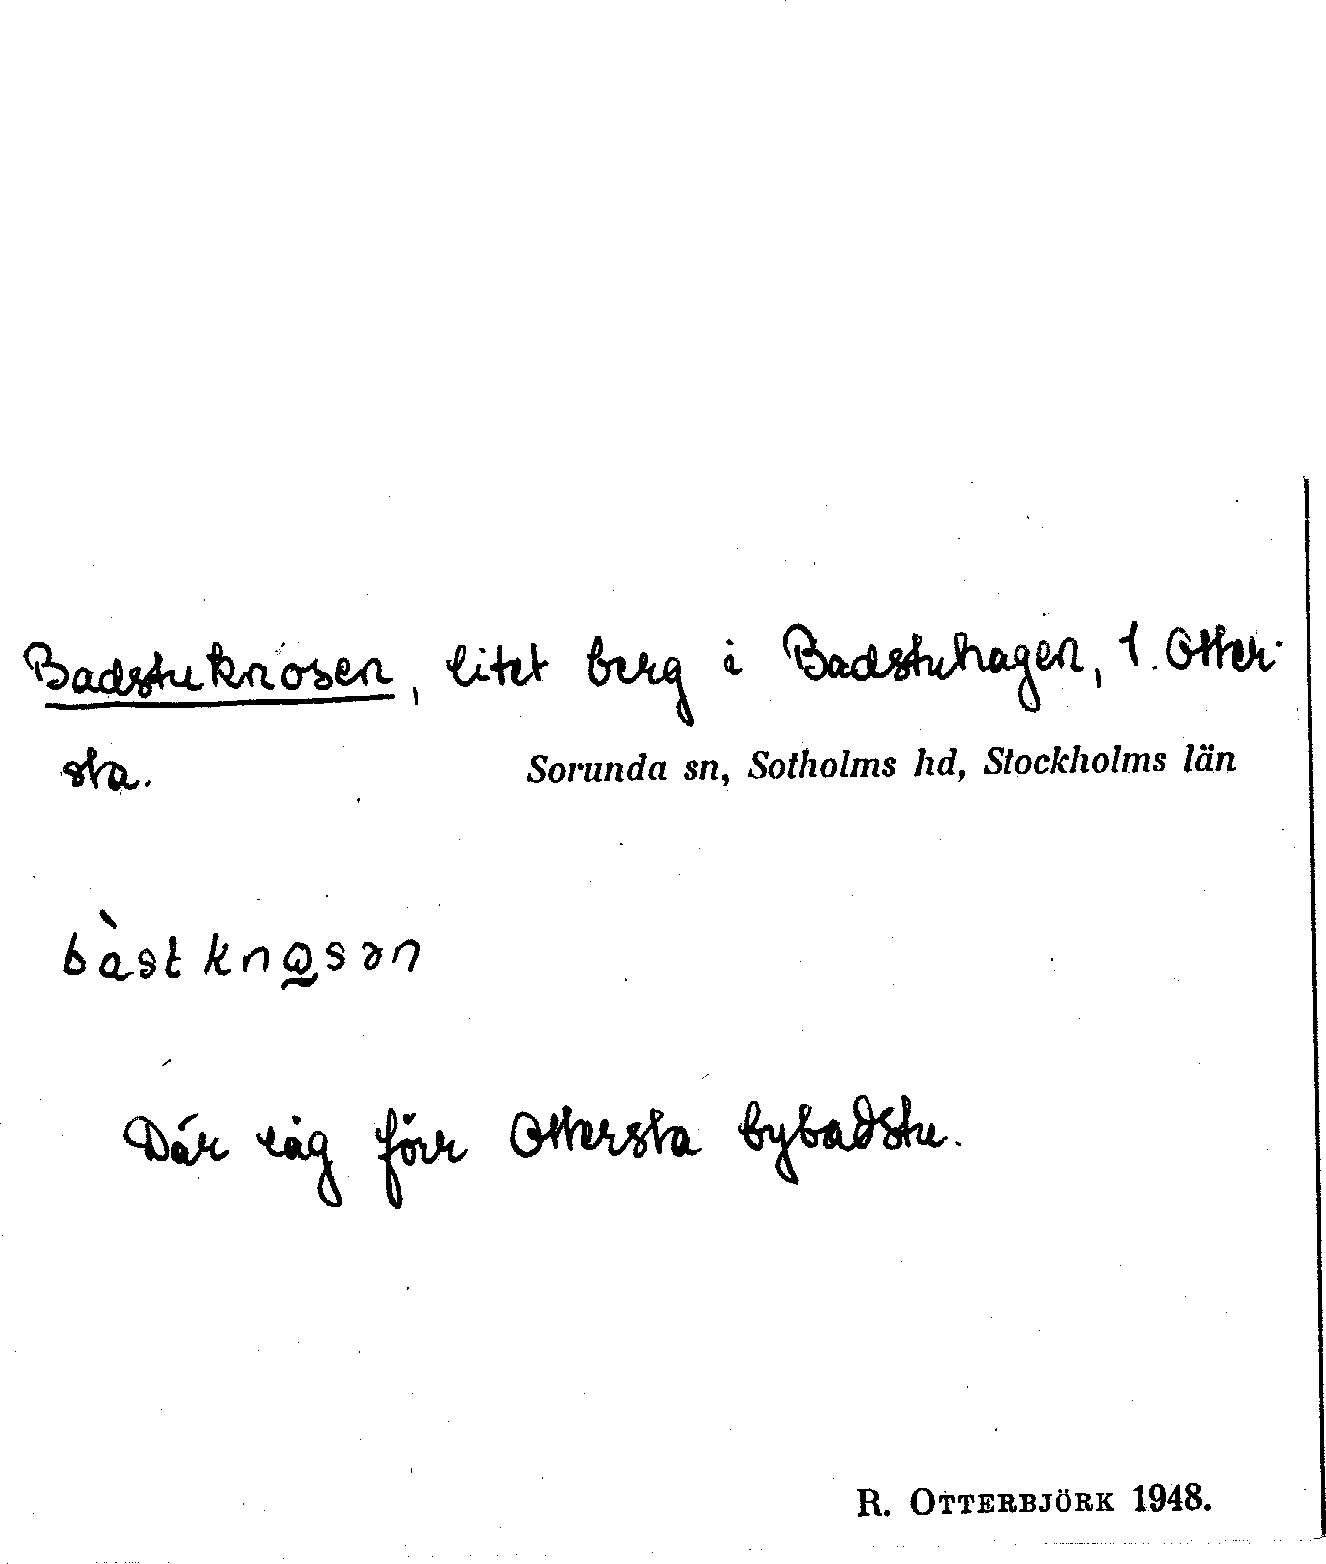 Badstuknosen, litet berg i Badstuhagen, 1. Otter-
sta. Sorunda sn, Sotholms hd, Stockholms län
bàstkno̰sən
Där låg förr Ottersta bybadstu.
R. OTTERBJÖRK 1948.